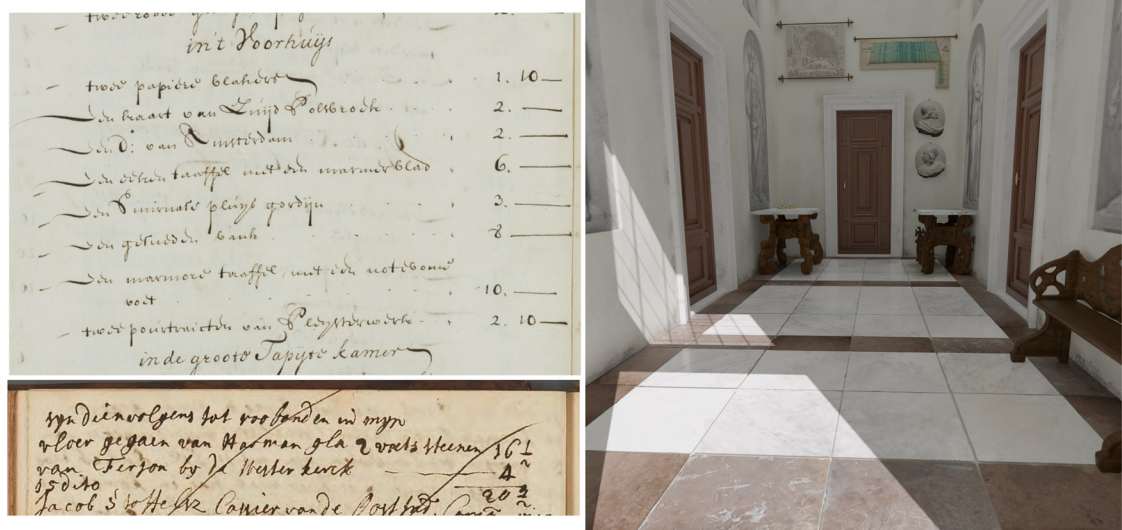 in't Voorhuijs
twee papiere blakers 1. 10—
Een kaart van Zuijd Polsbroek 2. —
Een Do: van Amsterdam 2. —
Een eeken taaffel met een marmerblad 6. —
Een Smirnals pluijs gordijn 3. —
Een gesneden bank 8 —
Een marmore taaffel, met een noteboome
voet 10. —
twee pourtraicten van Pleijsterwerk 2. 10—
in de groote Tapijte kamer
syn dienvolgens tot roobanden in myn
vloer gegaen van Harman gla 2 voets steenen 16 1/2
van Terson by de Wester kerck 4
15 dito 20 1/2
Jacob Cassier vande Oost Ind. Comp.